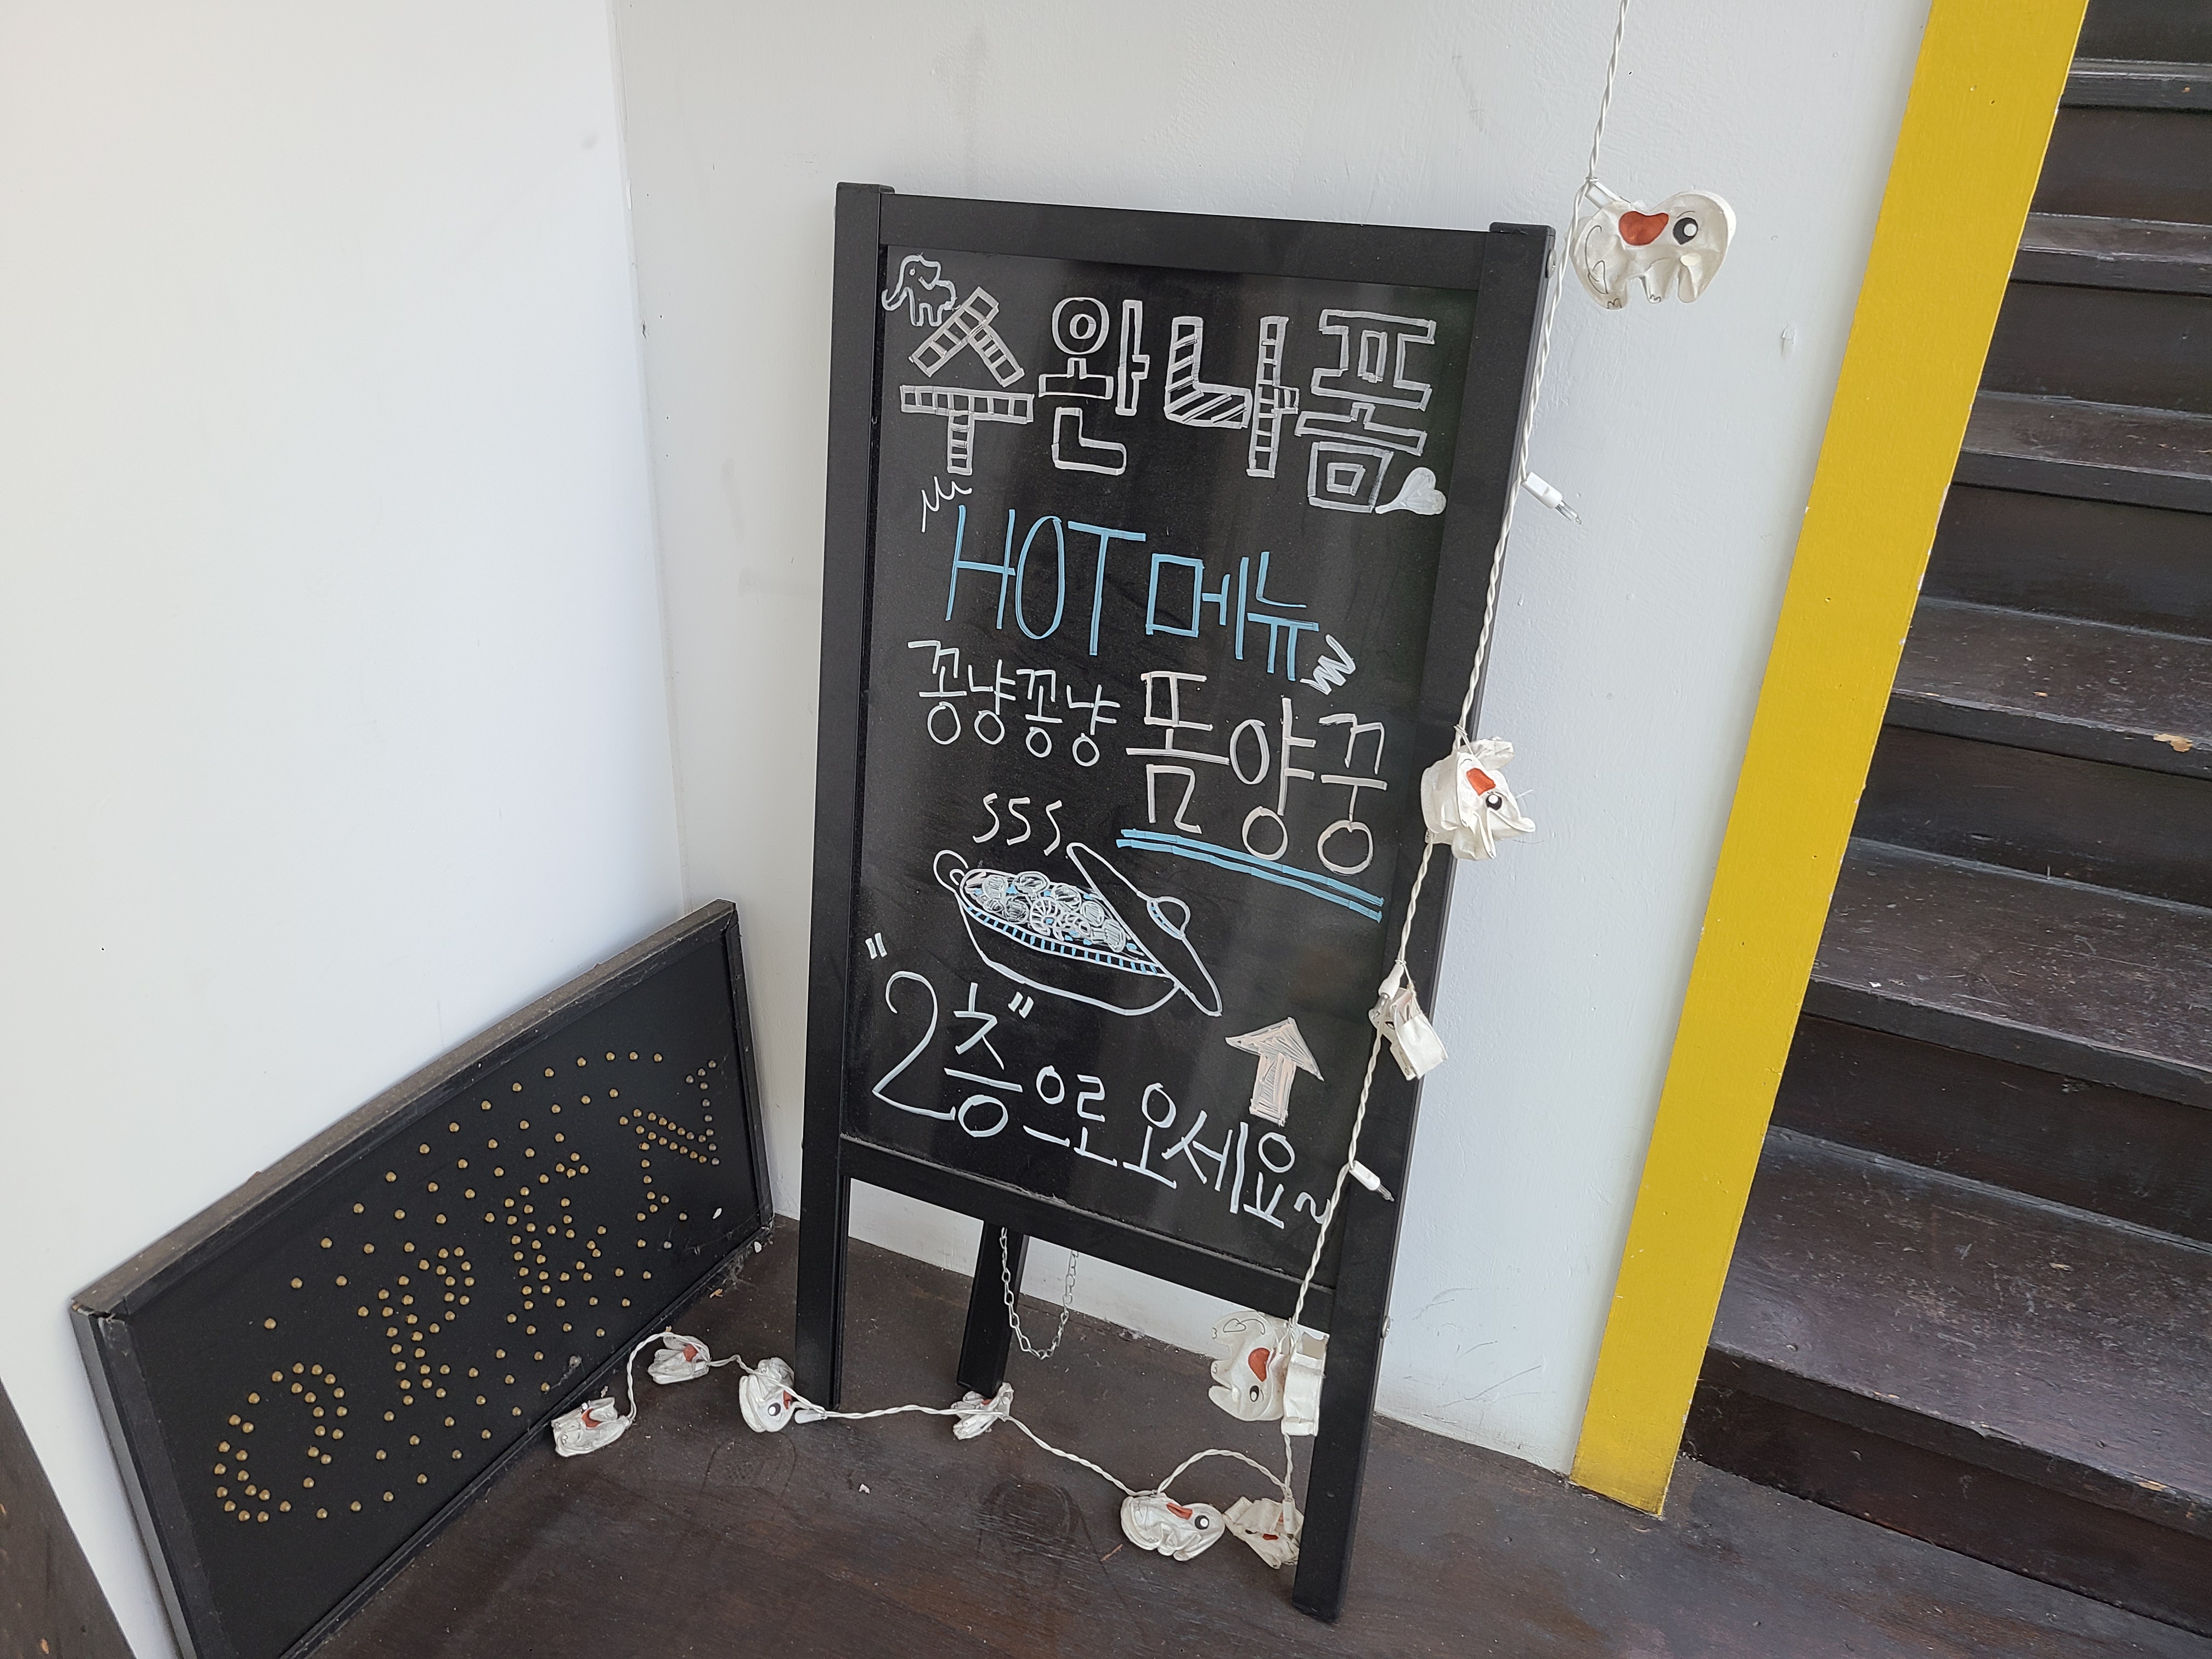 수완나품
HOT 메뉴
꽁냥꽁냥 똠양꿍
"2층"으로 오세요~
OPEN